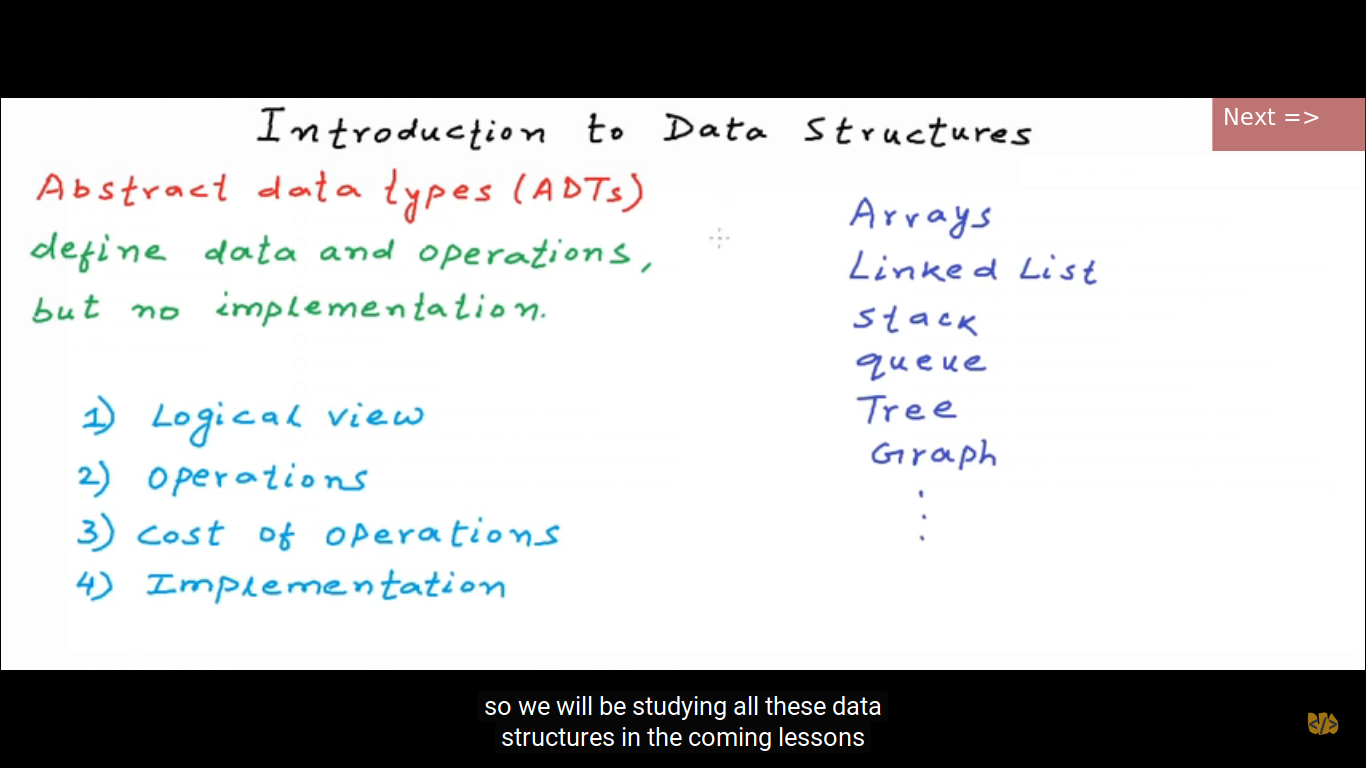 Introduction to Data Structures
Next =>
Abstract data types (ADTs)
define data and operations,
but no implementation.
1) Logical view
2) operations
3) cost of operations
4) Implementation
Arrays
Linked List
stack
queue
Tree
Graph
so we will be studying all these data
structures in the coming lessons